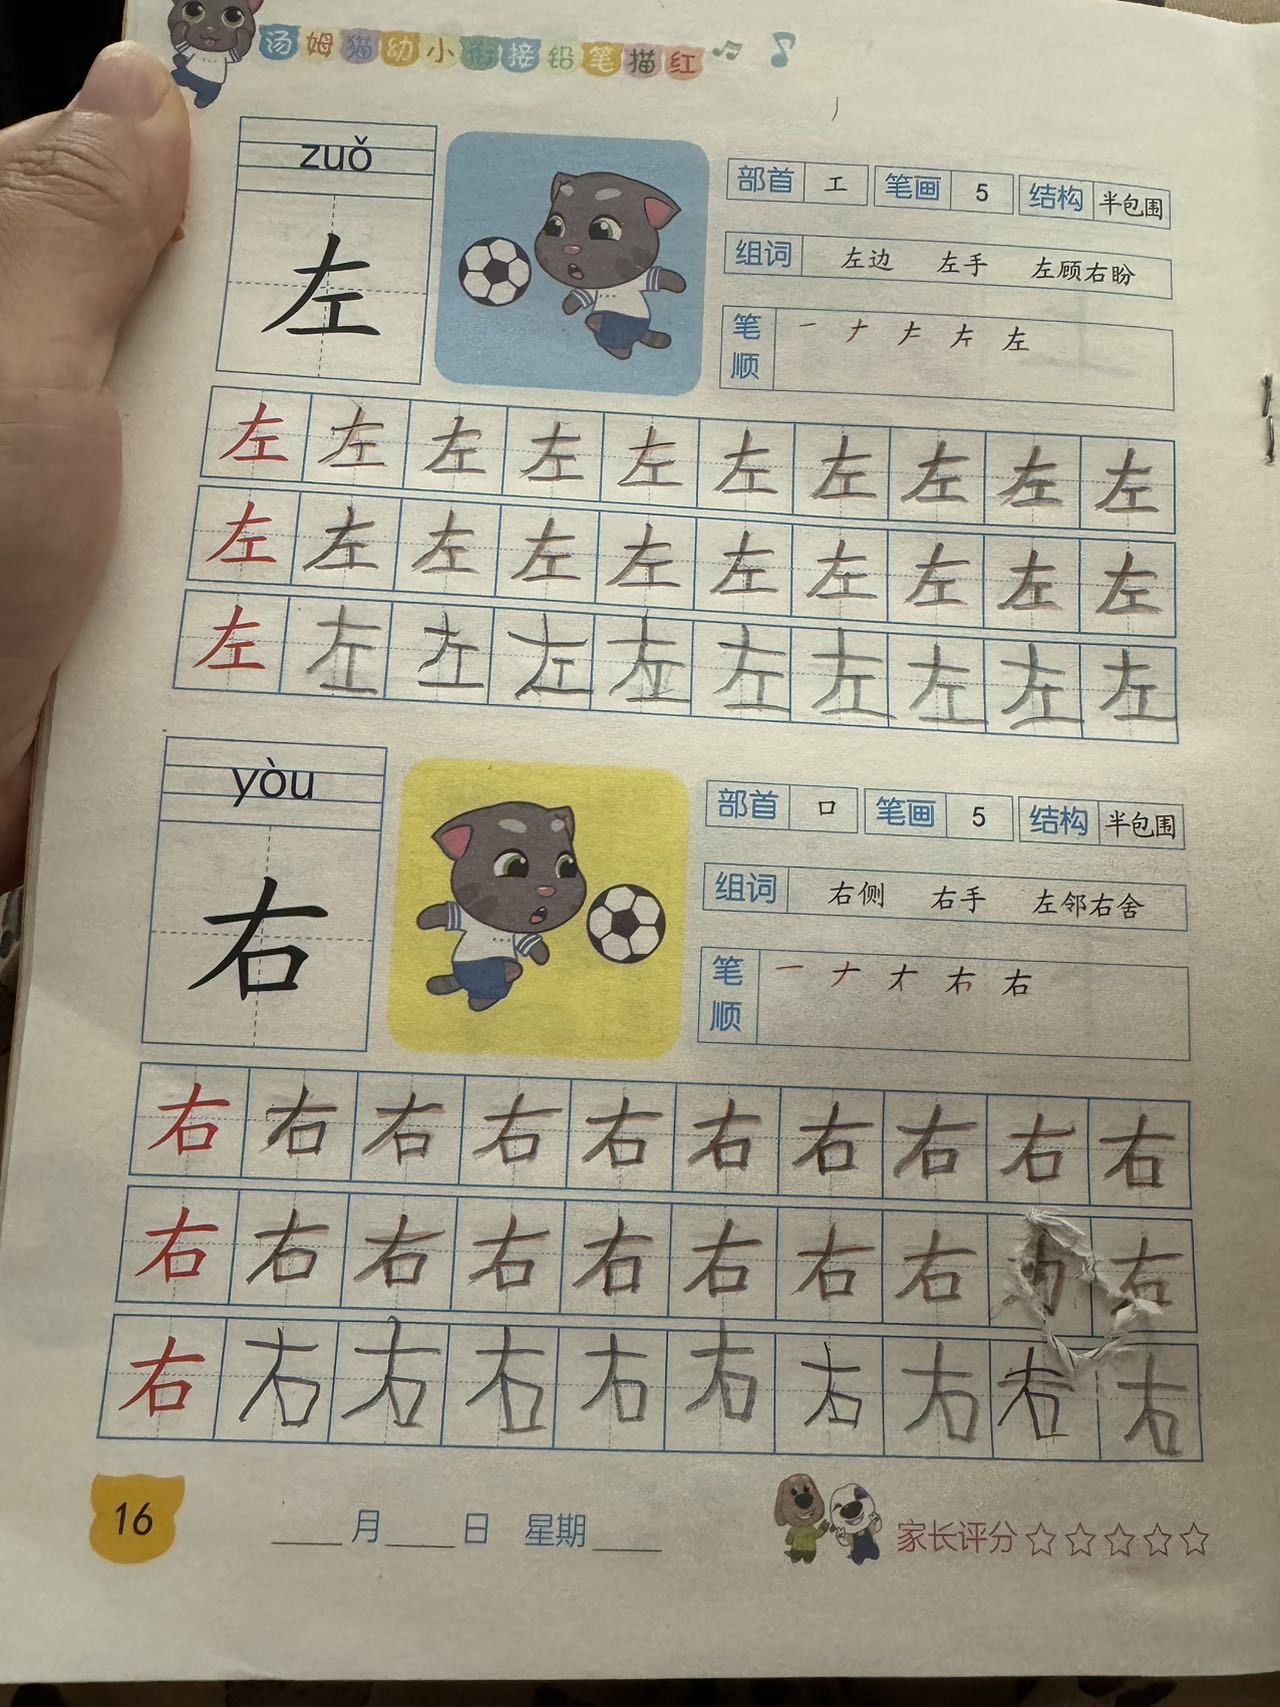 汤姆猫幼小衔接铅笔描红
zuǒ
左
部首 工 笔画 5 结构 半包围
组词 左边 左手 左顾右盼
笔顺 一 ナ 𠂇 左
左 左 左 左 左 左 左 左 左 左
左 左 左 左 左 左 左 左 左 左
左 左 左 左 左 左 左 左 左 左
yòu
右
部首 口 笔画 5 结构 半包围
组词 右侧 右手 左邻右舍
笔顺 一 ナ 右
右 右 右 右 右 右 右 右 右 右
右 右 右 右 右 右 右 右 右
右 右 右 右 右 右 右 右 右 右
16 月 日 星期 家长评分☆☆☆☆☆